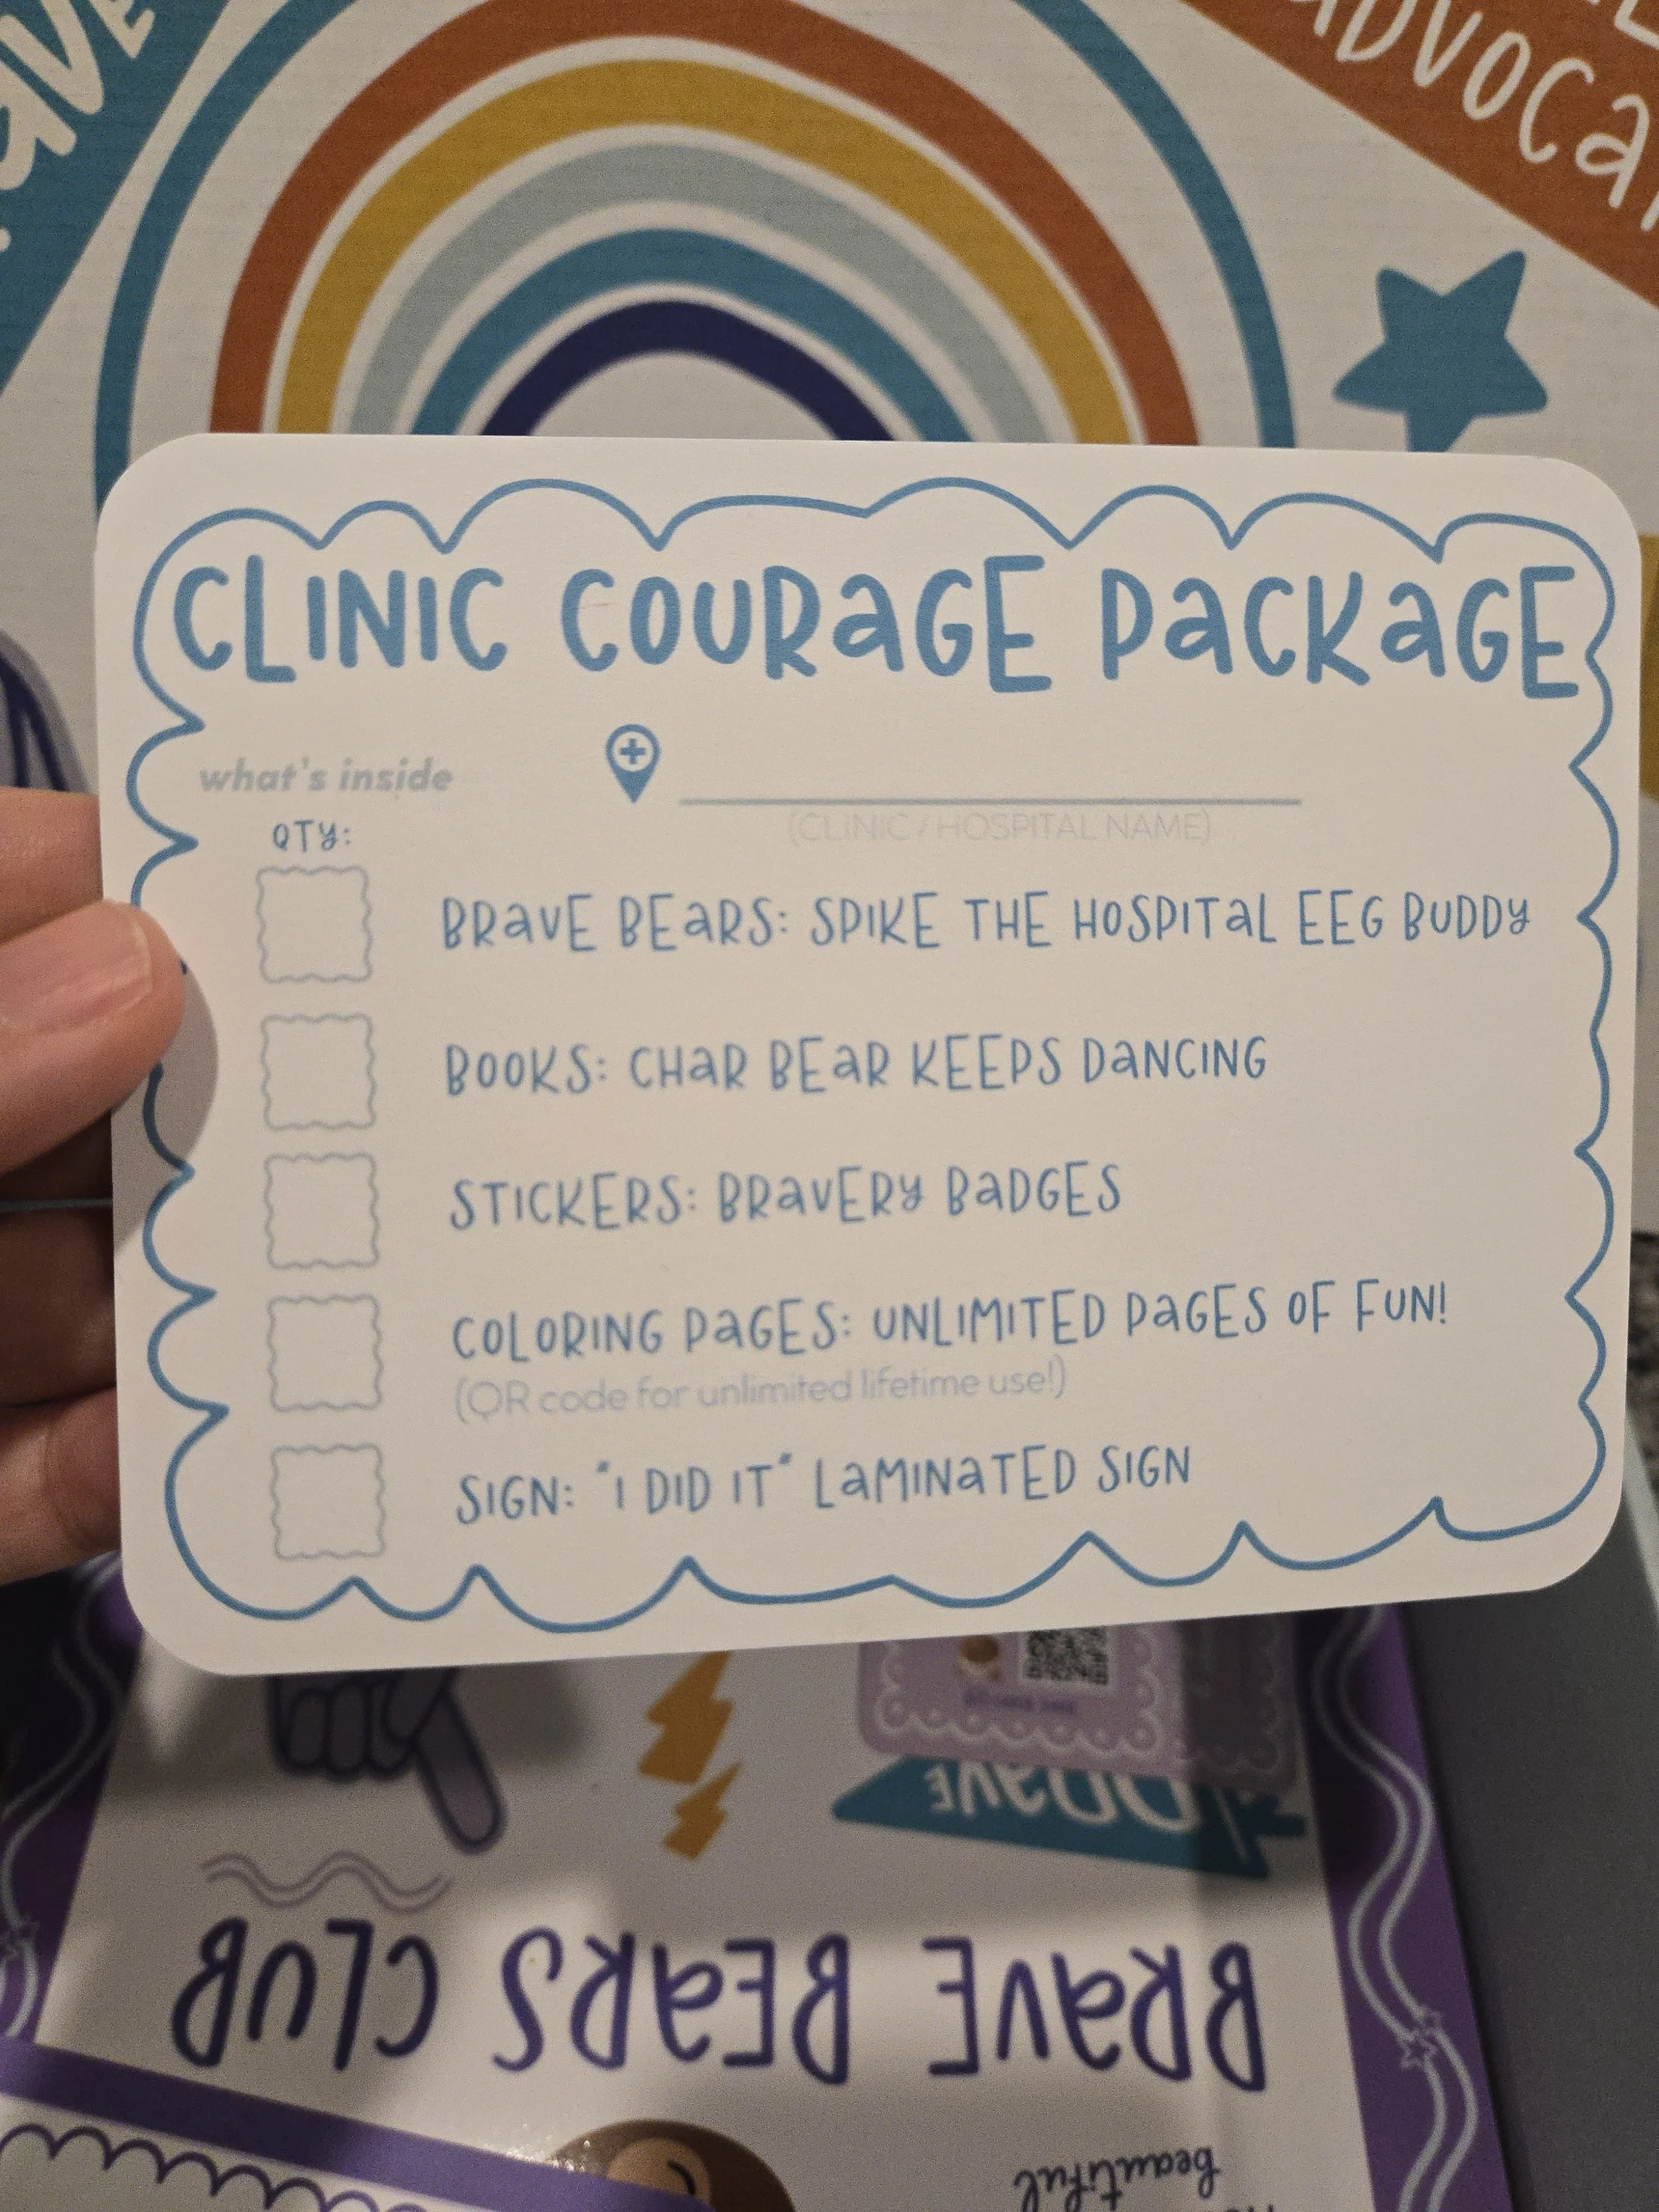 CLINIC COURAGE PACKAGE
what's inside
(CLINIC / HOSPITAL NAME)
QTY:
BRAVE BEARS: SPIKE THE HOSPITAL EEG BUDDY
BOOKS: CHAR BEAR KEEPS DANCING
STICKERS: BRAVERY BADGES
COLORING PAGES: UNLIMITED PAGES OF FUN!
(QR code for unlimited lifetime use!)
SIGN: "I DID IT" LAMINATED SIGN
BRAVE
BRAVE BEARS CLUB
beautiful